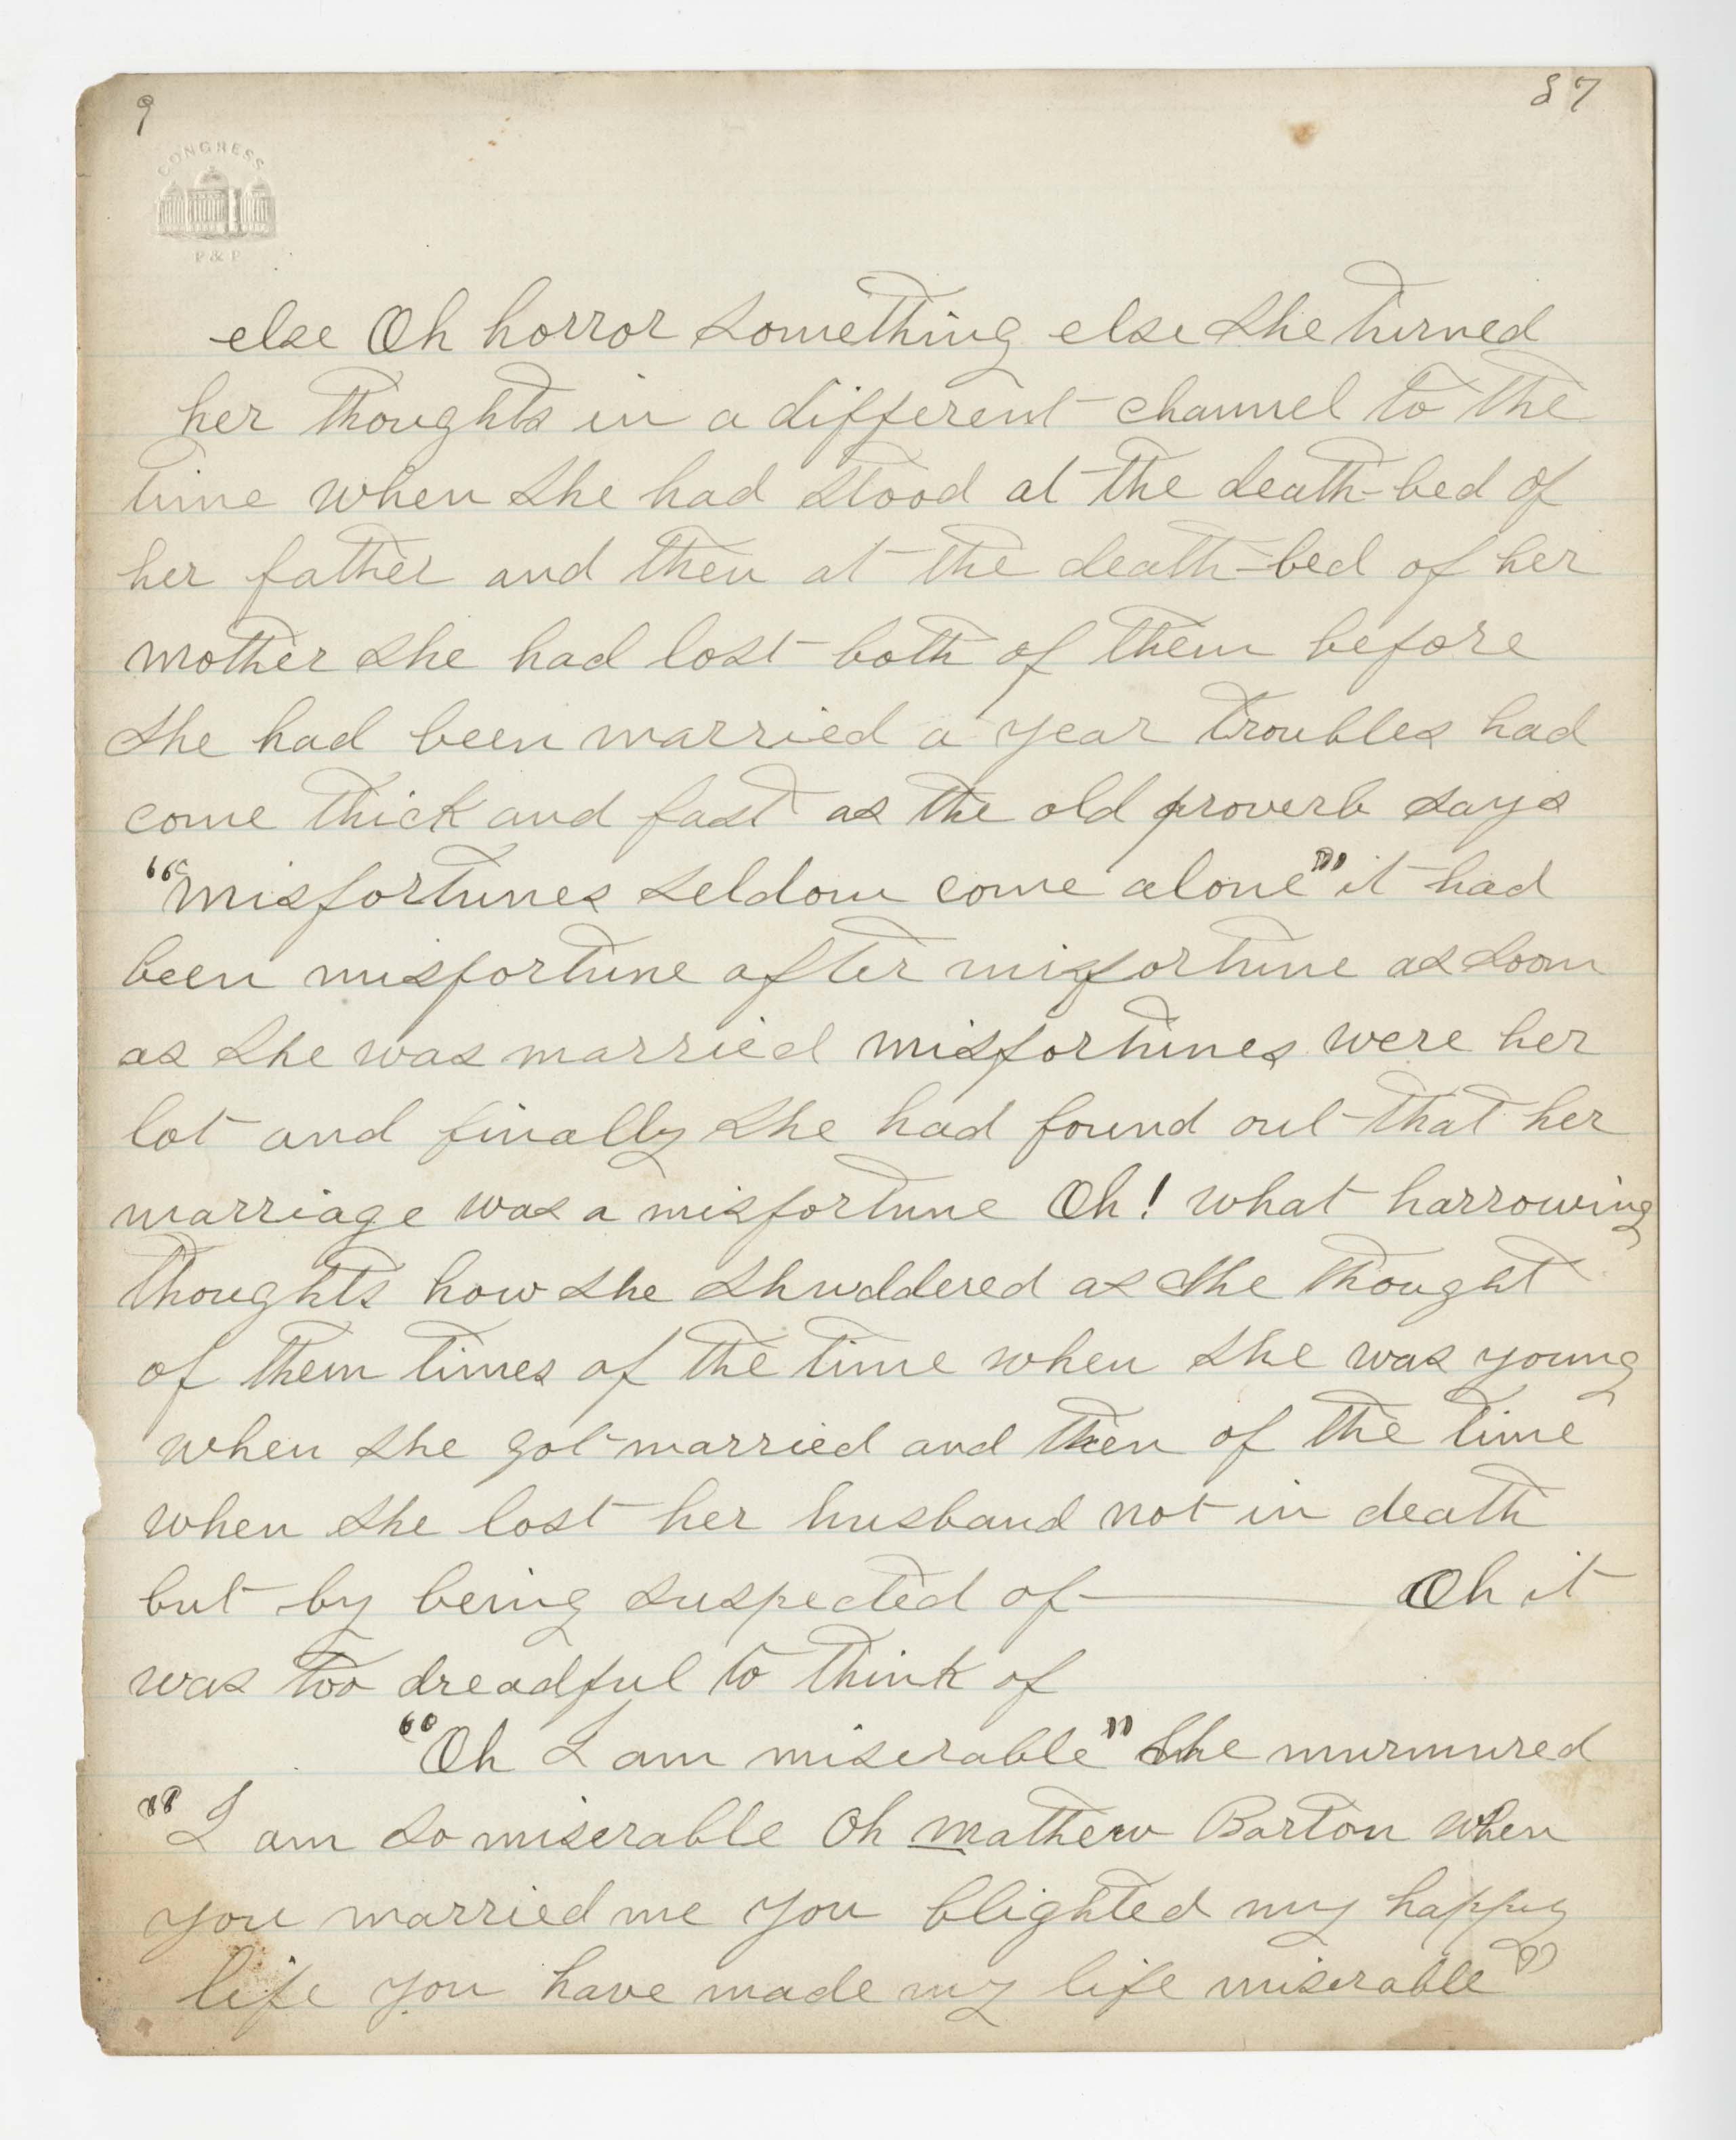 9
87
CONGRESS
P & P
else Oh horror something else she turned
her thoughts in a different channel to the
time when she had stood at the death-bed of
her father and then at the death-bed of her
mother she had lost both of them before
she had been married a year troubles had
come thick and fast as the old proverb says
"misfortunes seldom come alone" it had
been misfortune after misfortune as soon
as she was married misfortunes were her
lot and finally she had found out that her
marriage was a misfortune Oh! what harrowing
thoughts how she shuddered as she thought
of them times of the time when she was young
when she got married and then of the time
when she lost her husband not in death
but by being suspected of——— Oh it
was too dreadful to think of
"Oh I am miserable" she murmured
"I am so miserable Oh mathew Barton when
you married me you blighted my happy
life you have made my life miserable"